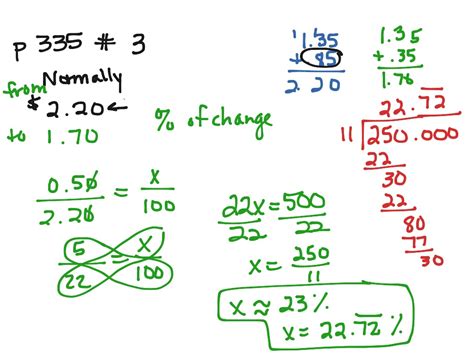 p 335 # 3
Normally
from $ 2.20 ←
to 1.70
% of change
1
1.35
+ .85
2.20
1.35
+ .35
1.70
0.50/2.20 = x/100
5/22 = x/100
22x/22 = 500/22
x = 250/11
x ≈ 23%
x = 22.72%
22.72
11 250.000
22
30
22
80
77
30